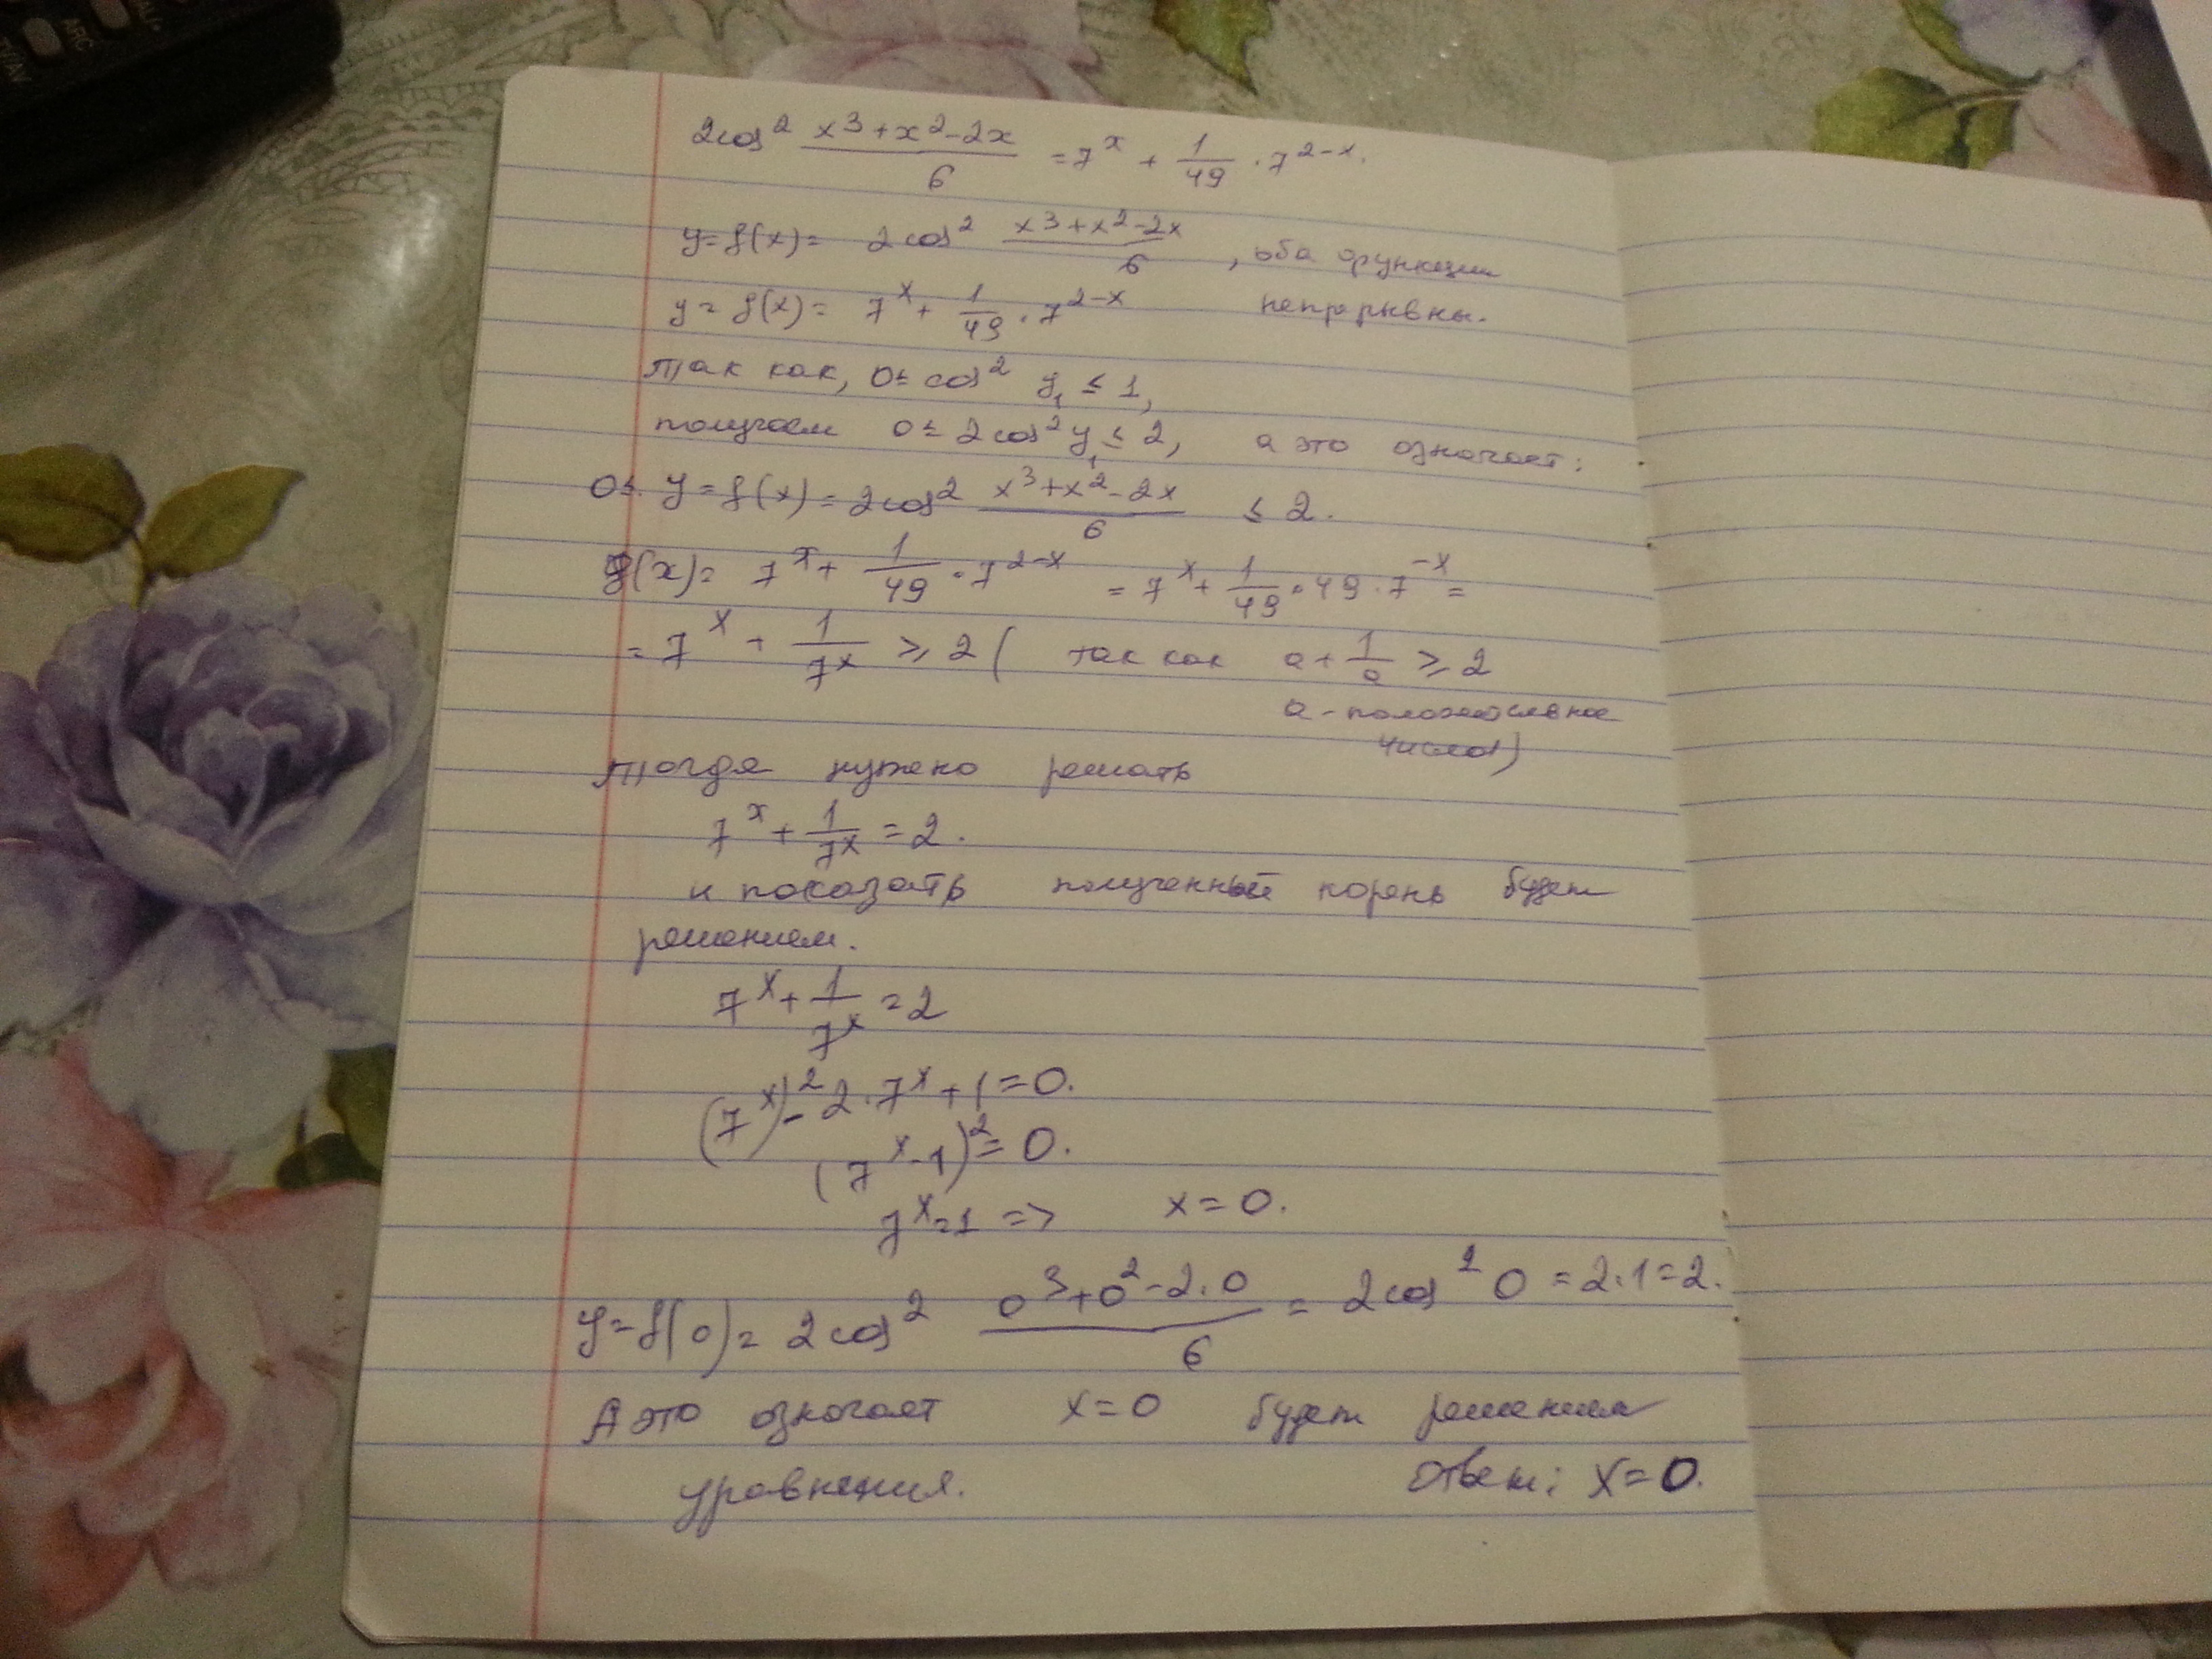 2cos² (x³+x²-2x)/6 = 7^x + 1/49 · 7^(2-x).
y=f(x)= 2cos² (x³+x²-2x)/6 , оба функции
y=f(x)= 7^x + 1/49 · 7^(2-x) непрерывны.
Так как, 0≤ cos² y₁ ≤ 1,
получаем 0≤ 2cos² y₁ ≤ 2, а это означает:
0≤ y=f(x)=2cos² (x³+x²-2x)/6 ≤ 2.
f(x)= 7^x + 1/49 · 7^(2-x) = 7^x + 1/49 · 49 · 7^(-x) =
= 7^x + 1/7^x ≥ 2 ( так как a + 1/a ≥ 2
a - положительное
число)
Тогда нужно решать
7^x + 1/7^x = 2.
и показать полученный корень будет
решением.
7^x + 1/7^x = 2
(7^x)² - 2·7^x + 1 = 0.
(7^x - 1)² = 0.
7^x = 1 => x = 0.
y=f(0)= 2cos² (0³+0²-2·0)/6 = 2cos² 0 = 2·1=2.
А это означает x=0 будет решением
уравнения. Ответ: x=0.